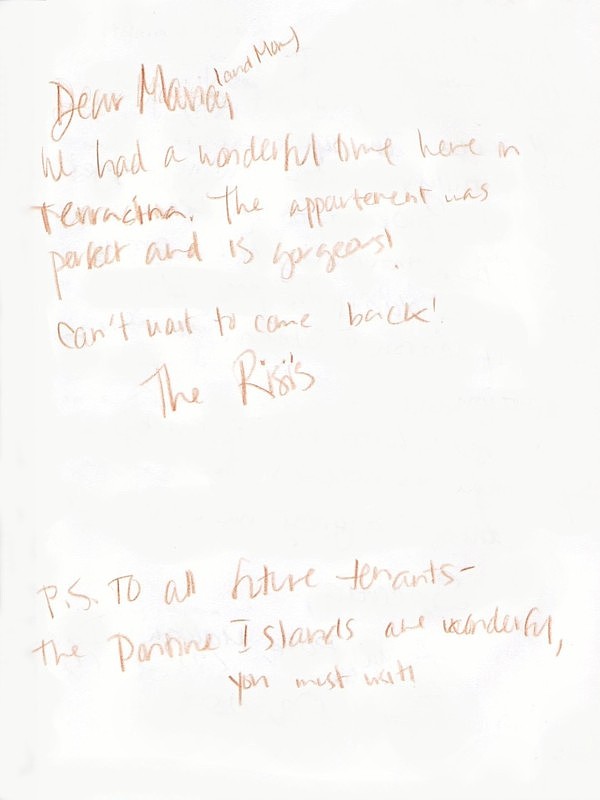 Dear Maria, (and Mom)
We had a wonderful time here in
Terracina. The appartement was
perfect and is gorgeous!
Can't wait to come back!
The Risi's
P.S. TO all future tenants-
the Pontine Islands are wonderful,
you must visit!